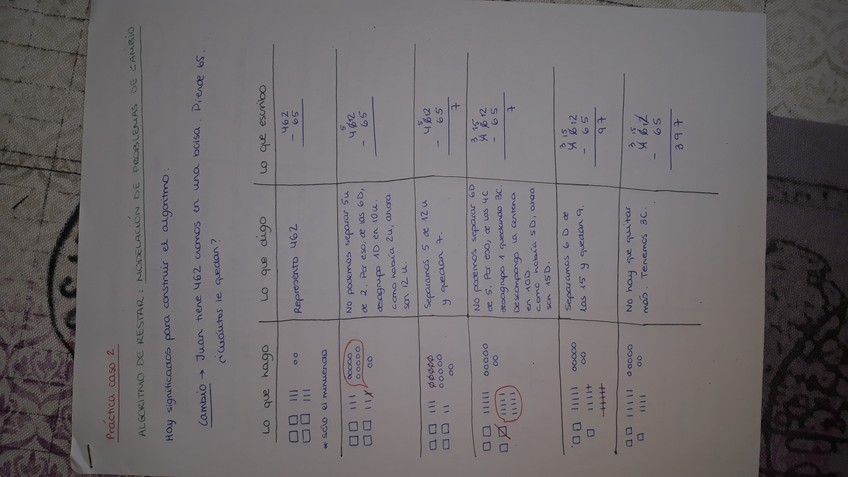 Práctica caso 2
ALGORITMO DE RESTAR: MODELACIÓN DE PROBLEMAS DE CAMBIO
Hay significados para construir el algoritmo.
Cambio → Juan tiene 462 cromos en una bolsa. Pierde 65.
¿Cuántos le quedan?
Lo que hago
Lo que digo
Lo que escribo
* Sólo el minuendo
Represento 462
462
- 65
No podemos separar 5u
de 2. Por eso, de las 6D,
desagrupa 1D en 10u.
como había 2u, ahora
son 12 u.
5
4612
- 65
Separamos 5 de 12 u
y quedan 7.
5
4612
- 65
7
No podemos separar 6D
de 5. Por eso, de las 4C
desagrupa 1 quedando 3C.
Descompongo la centena
en 10D.
como había 5D, ahora
son 15D.
3 15
4 6 12
- 65
7
Separamos 6 D de
las 15 y quedan 9.
3 15
4 6 12
- 65
97
No hay que quitar
más. Tenemos 3C.
3 15
4 6 12
- 65
397